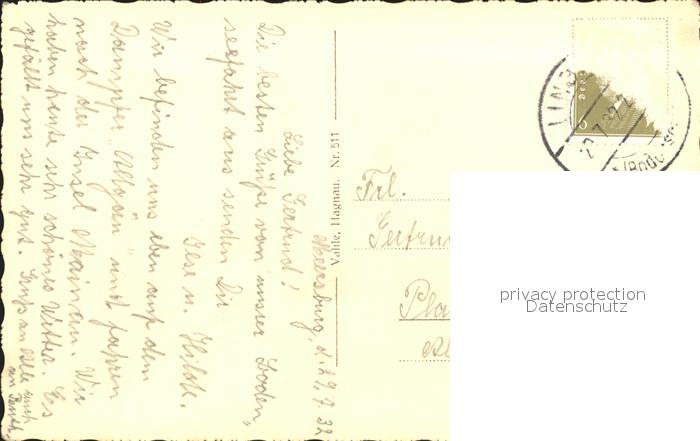 Meersburg, d. 29.7.32
Liebe Gertrud!
Die besten Grüße von unsrer Boden„
seefahrt aus senden Dir
Ilse u. Hilde.
Wir befinden uns eben auf dem
Dampfer „Allgäu“ und fahren
nach der Insel Mainau. Wir
haben heute sehr schönes Wetter. Es
gefällt uns sehr gut. Gruß an alle auch
Vahle, Hagnau. Nr. 511
Frl.
Gertru
Pla
LIND
privacy protection
Datenschutz